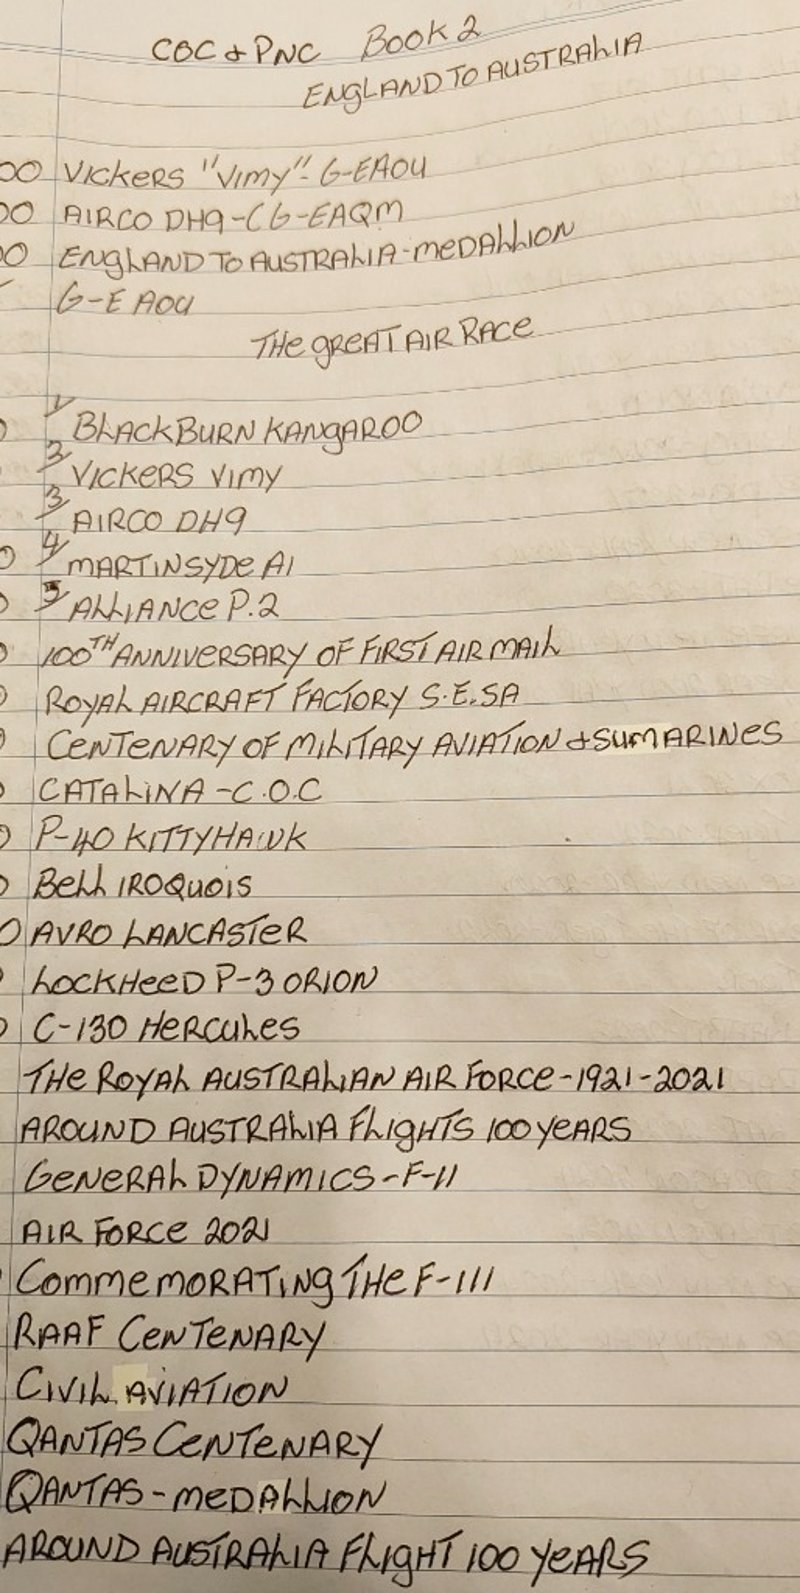 COC & PNC BOOK 2
ENGLAND TO AUSTRALIA
00 VICKERS "VIMY"- G-EAOU
00 AIRCO DH9-C G-EAQM
00 ENGLAND TO AUSTRALIA-MEDALLION
G-EAOU
THE GREAT AIR RACE
1/ BLACKBURN KANGAROO
2/ VICKERS VIMY
3/ AIRCO DH9
4/ MARTINSYDE A1
5/ ALLIANCE P.2
100TH ANNIVERSARY OF FIRST AIR MAIL
ROYAL AIRCRAFT FACTORY S.E.5A
CENTENARY OF MILITARY AVIATION & SUMARINES
CATALINA -C.O.C
P-40 KITTYHAWK
BELL IROQUOIS
0 AVRO LANCASTER
LOCKHEED P-3 ORION
C-130 HERCULES
THE ROYAL AUSTRALIAN AIR FORCE-1921-2021
AROUND AUSTRALIA FLIGHTS 100 YEARS
GENERAL DYNAMICS-F-11
AIR FORCE 2021
COMMEMORATING THE F-111
RAAF CENTENARY
CIVIL AVIATION
QANTAS CENTENARY
QANTAS-MEDALLION
AROUND AUSTRALIA FLIGHT 100 YEARS